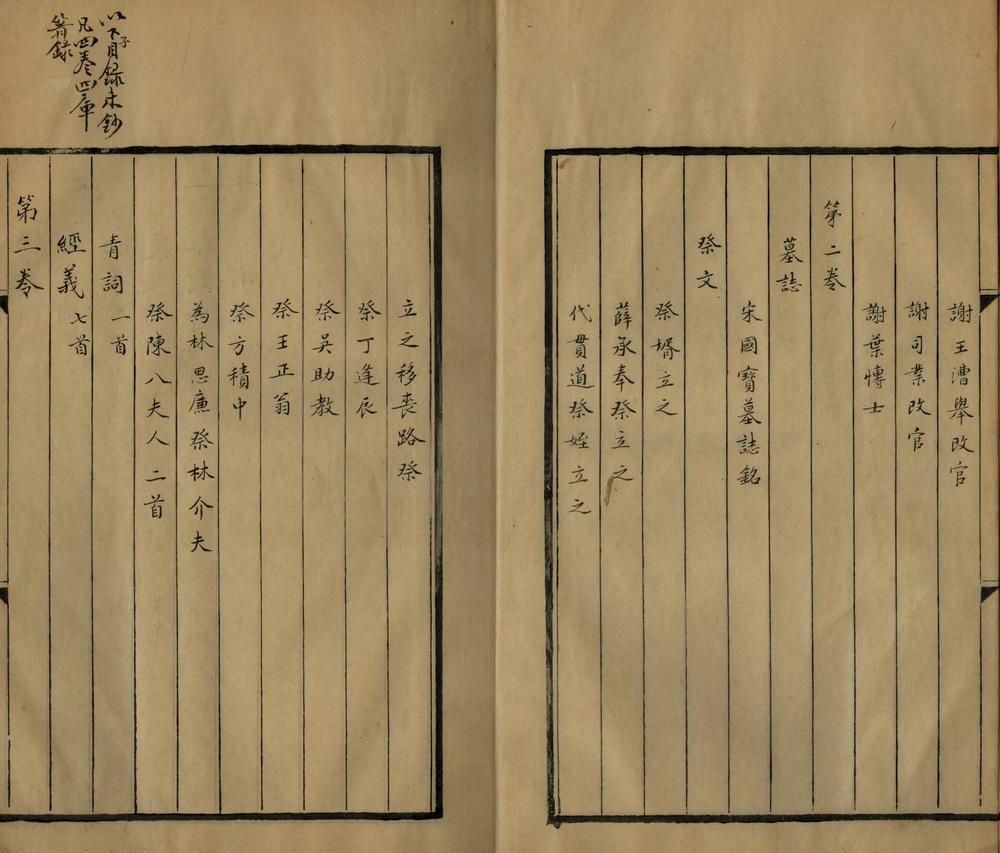 謝王漕舉改官
謝司業改官
謝葉愽士
第二卷
墓誌
宋國寶墓誌銘
祭文
祭壻立之
薛承奉祭立之
代貫道祭姪立之
立之移喪路祭
祭丁逢辰
祭吳助教
祭王正翁
祭方積中
為林思廉祭林介夫
祭陳八夫人二首
青詞一首
經義七首
第三卷
以下子目録未鈔
凡四卷四庫
著錄